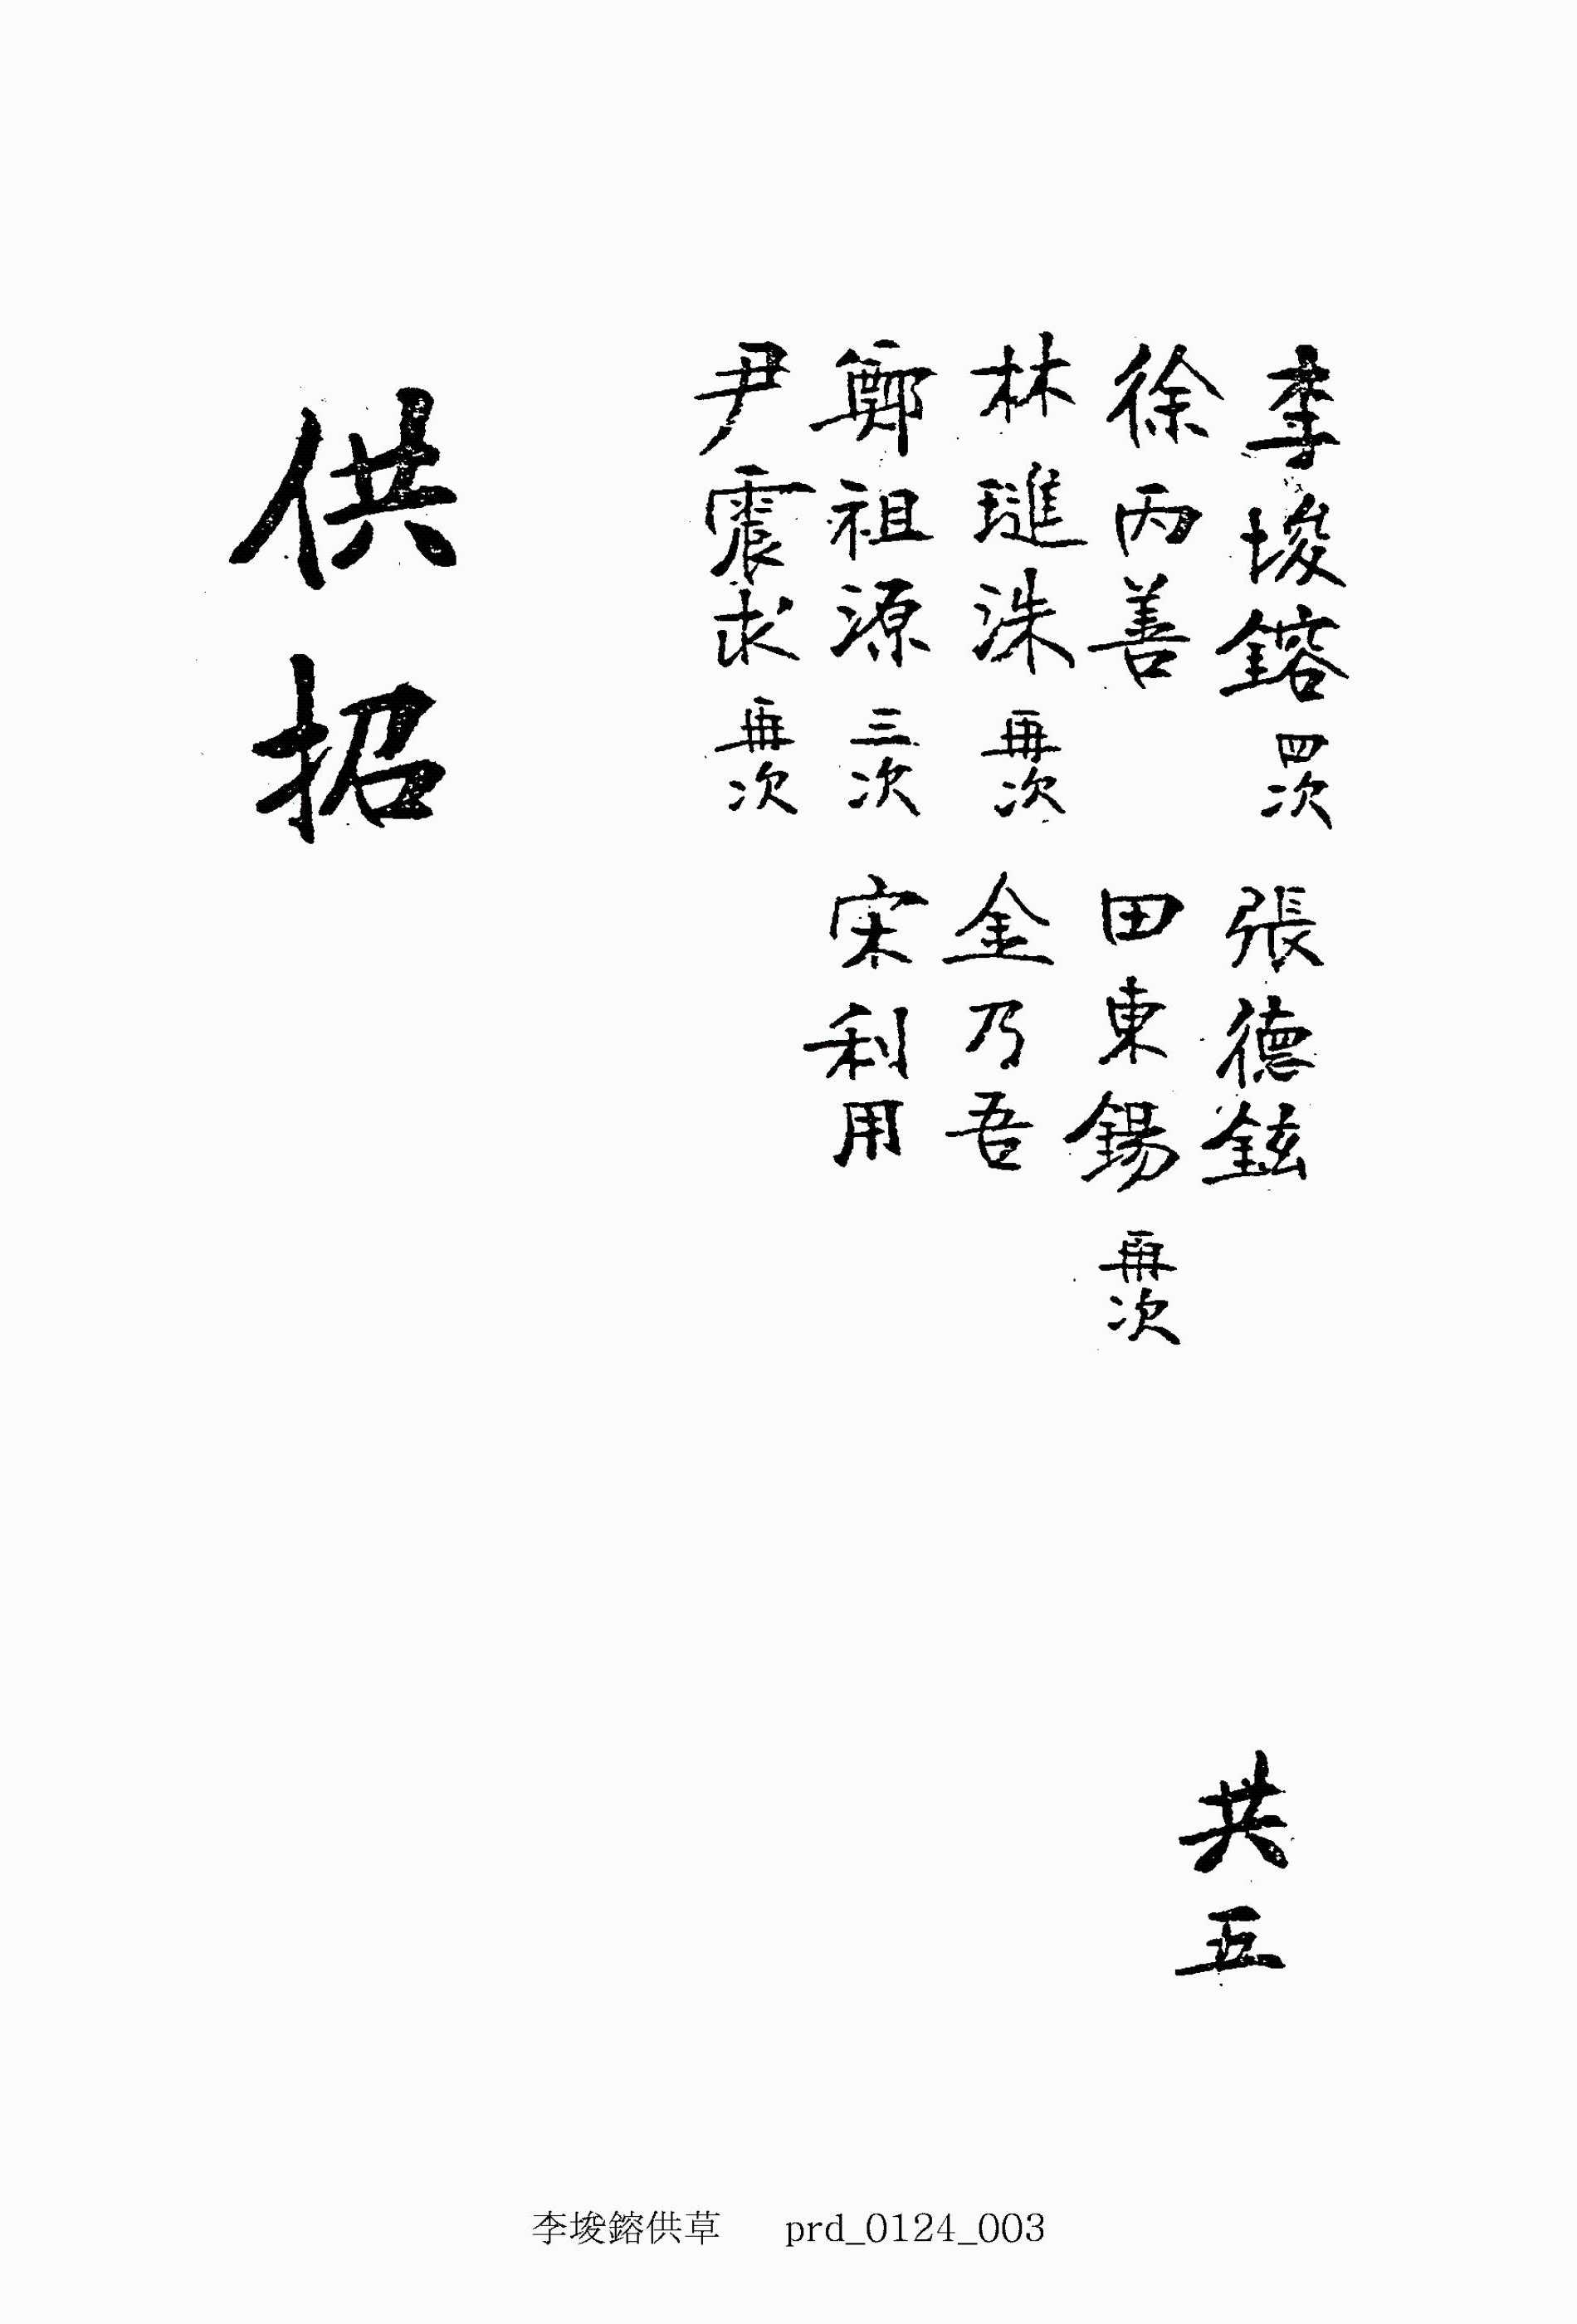 李埈鎔 四次 張德鉉
徐丙善 田東錫 再次
林璡洙 再次 金乃吾
鄭祖源 三次 宋利用
尹震求 再次
供招
共五
李埈鎔供草 prd_0124_003